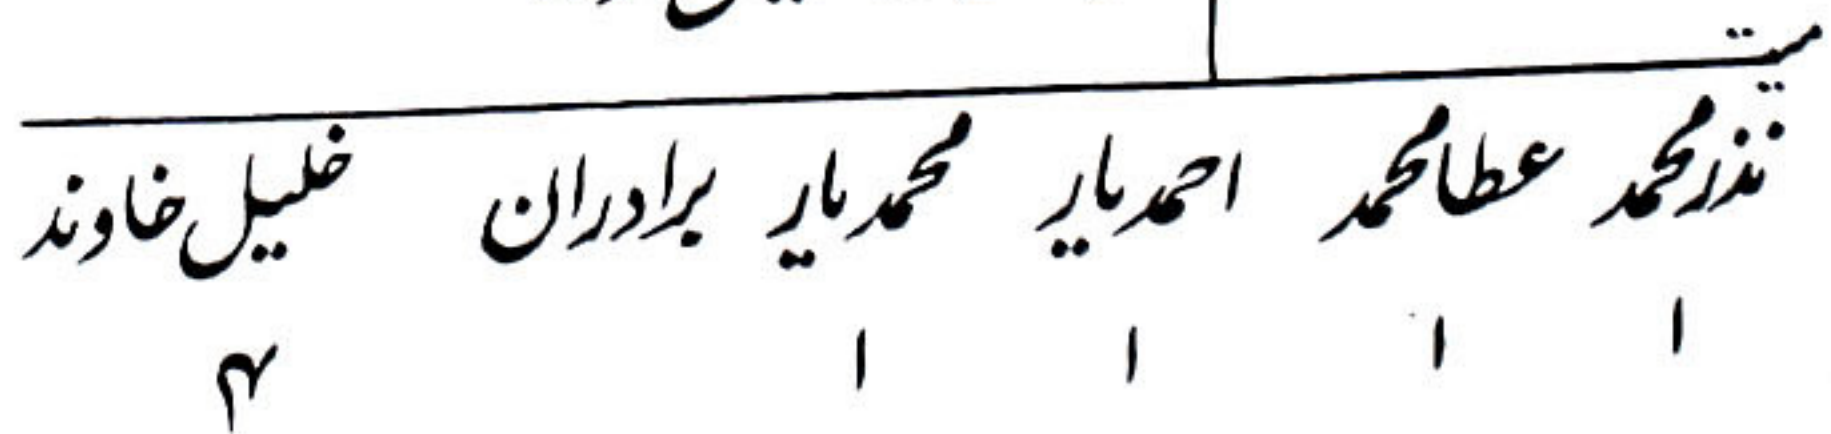 میت
نذر محمد عطا محمد احمد یار محمد یار برادران خلیل خاوند
۱ ۱ ۱ ۱ ۴